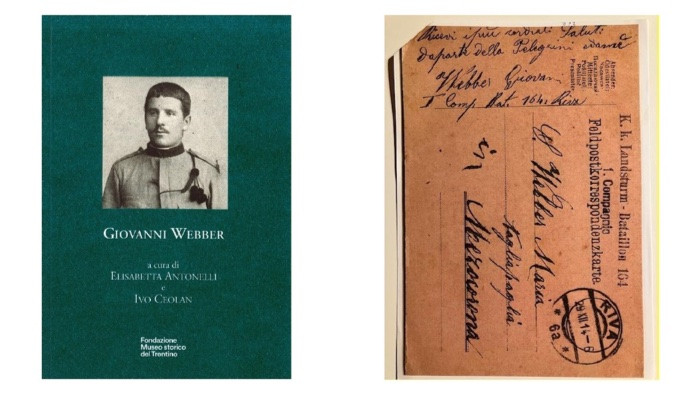 GIOVANNI WEBBER
a cura di
ELISABETTA ANTONELLI
e
IVO CEOLAN
Fondazione
Museo storico
del Trentino
Ricevi i più cordiali Saluti
da parte della Pelegrini
Webber Giovan
I Comp. Bat. 164 Riva
K. k. Landsturm - Bataillon 164
1. Compagnie
Feldpostkorrespondenzkarte.
Webber Maria
Tagliapaglia
in
RIVA
29 XII 14 - 6
* 6a *